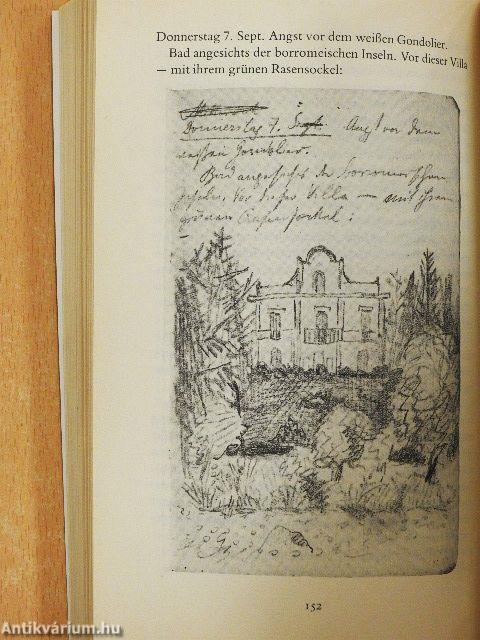 Donnerstag 7. Sept. Angst vor dem weißen Gondolier.
Bad angesichts der borromeischen Inseln. Vor dieser Villa
— mit ihrem grünen Rasensockel:
Mittwoch
Donnerstag 7. Sept. Angst vor dem
weißen Gondolier.
Bad angesichts der borromeischen
Inseln. Vor dieser Villa — mit ihrem
grünen Rasensockel:
152
Antikvárium.hu